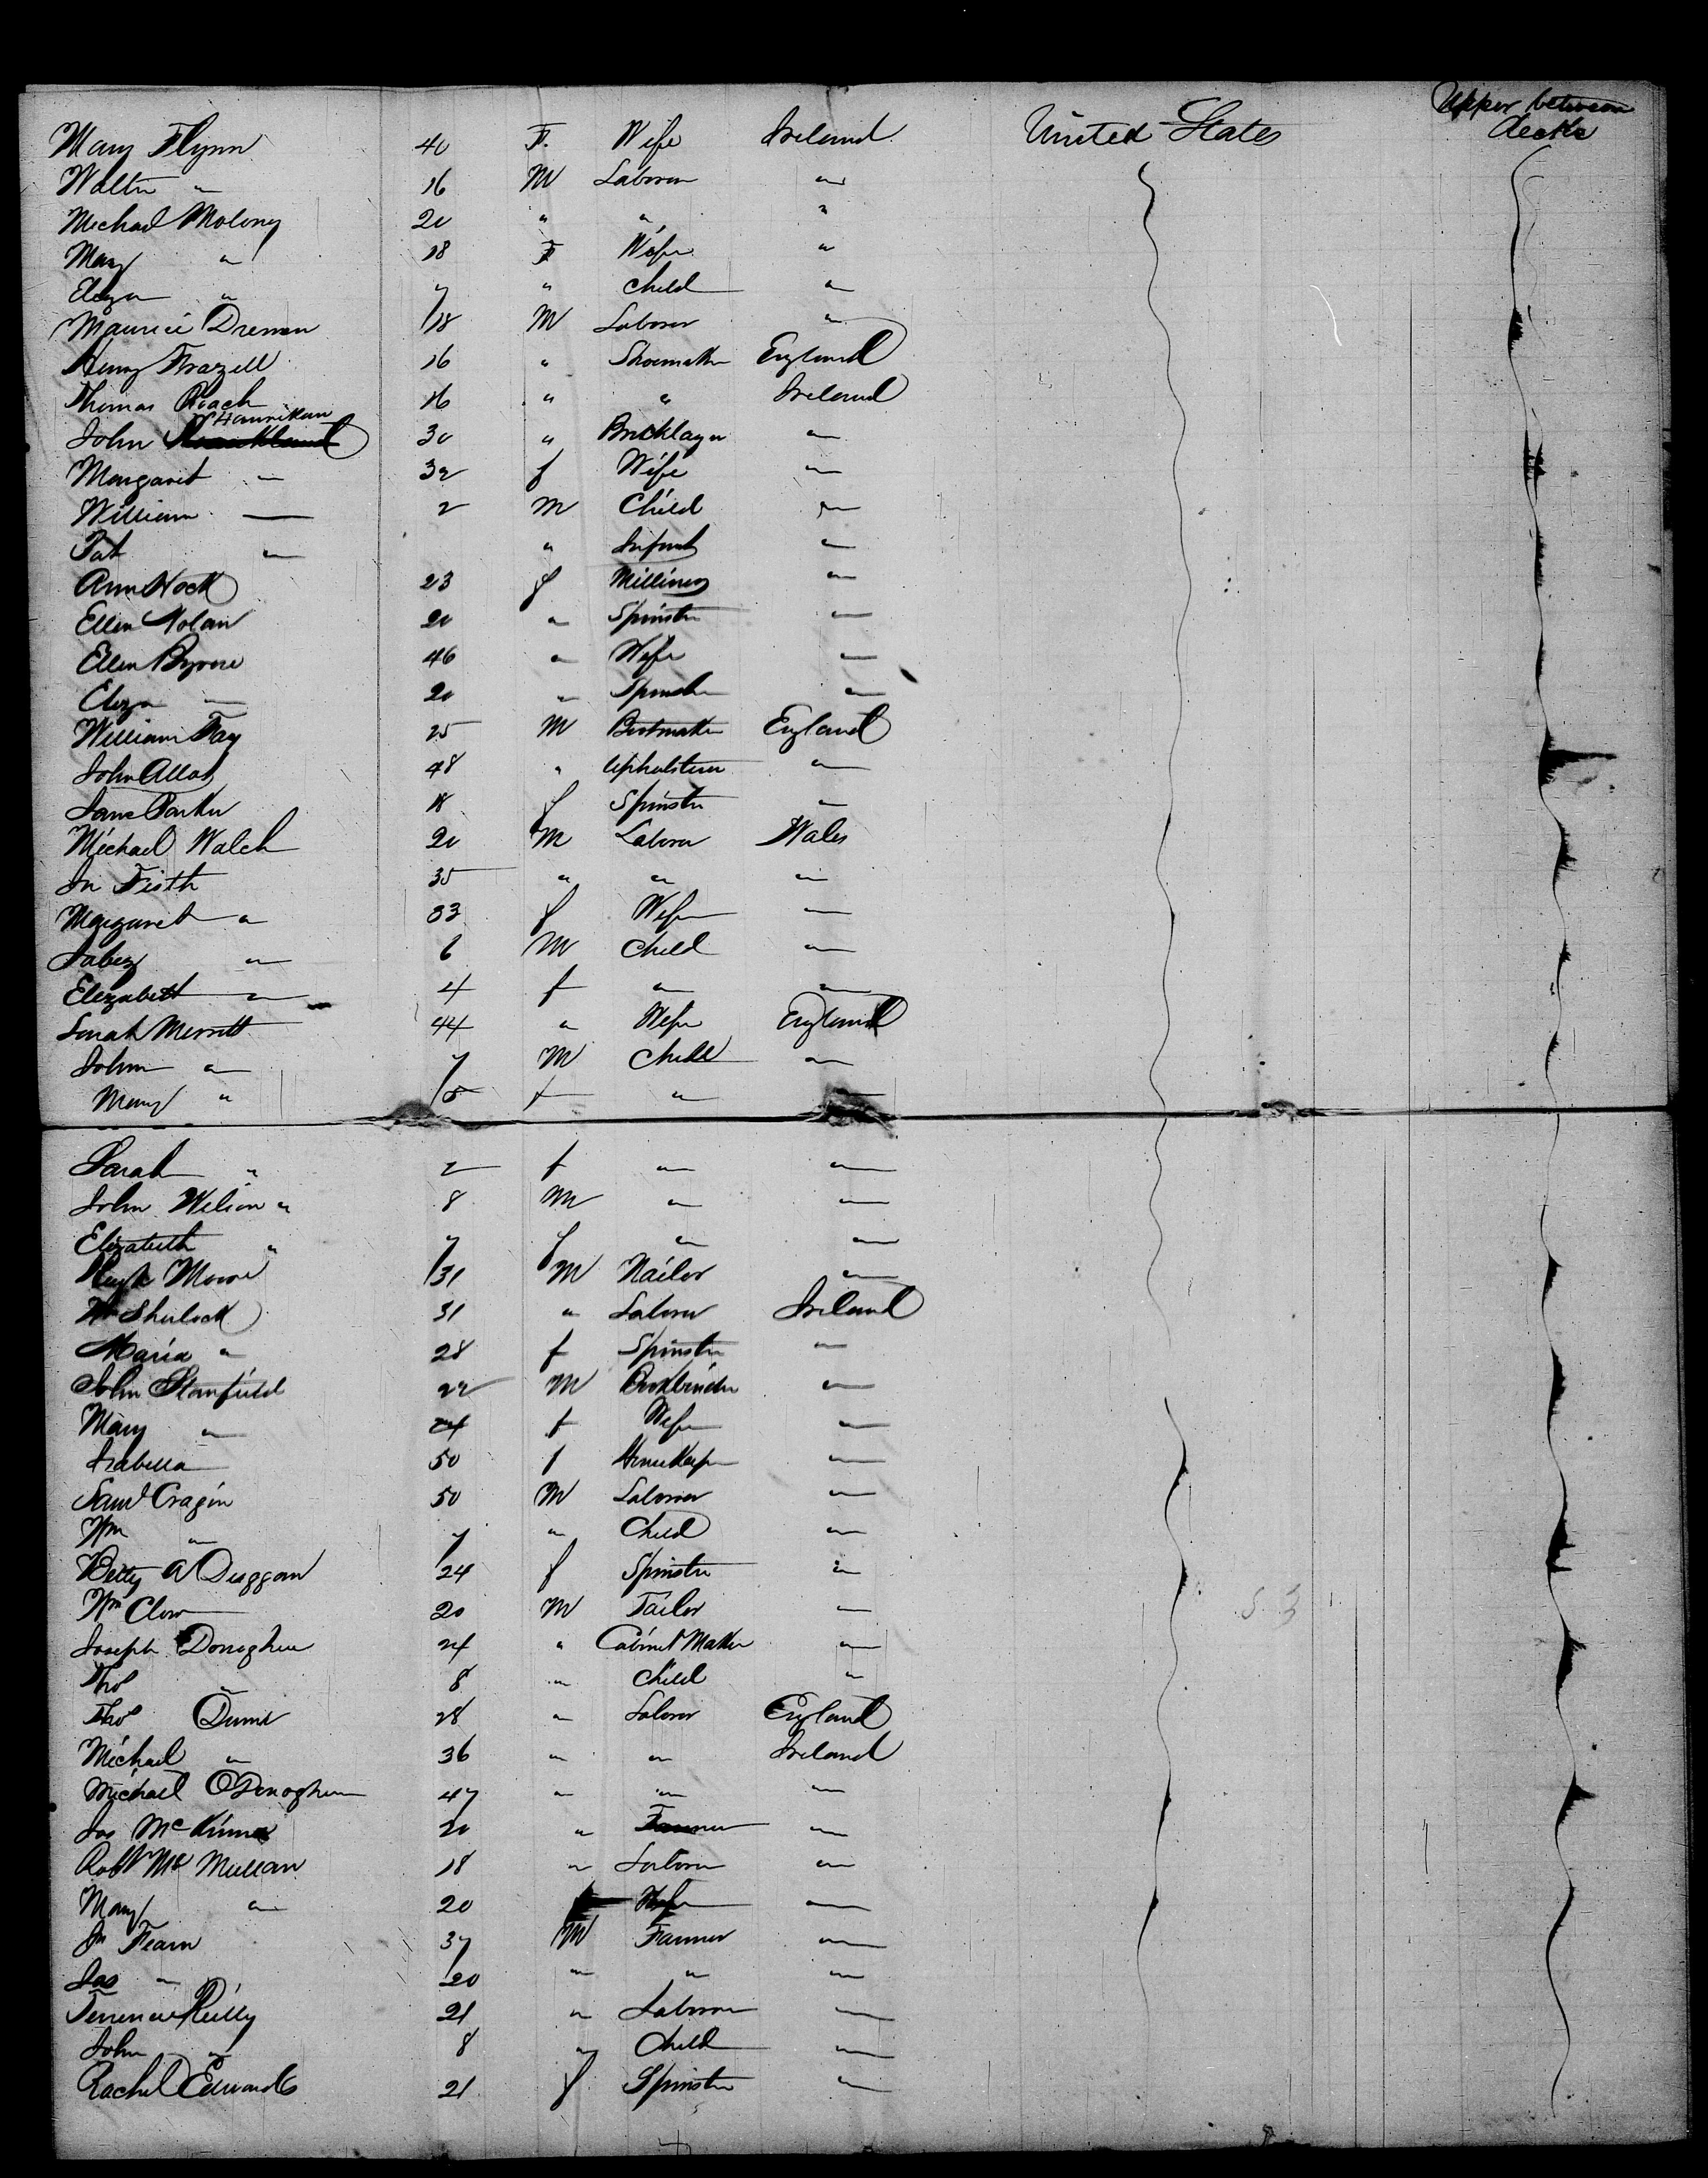 Upper between
Mary Flynn 40 F. Wife Ireland United States decks
Walter " 16 M Laborer "
Michael Molony 20 " " "
Mary " 18 F Wife "
Eliza " 7 " Child "
Maurice Drennan 18 M Laborer "
Henry Frazell 16 " Shoemaker England
Thomas Roach 16 " " Ireland
Hannrikan
John 30 " Bricklayer "
Margaret " 32 f Wife "
William — 2 M Child "
Pat " " Infant "
Ann Hock 23 f Millinery "
Ellen Nolan 20 " Spinster "
Ellen Byrne 46 " Wife "
Eliza " 20 " Spinster "
William Fay 25 M Bootmaker England
John Allot 48 " Upholsterer "
Jane Parker 18 f Spinster "
Michael Walch 20 M Laborer Wales
Jn Firth 35 " " "
Margaret " 33 f Wife "
Jabez " 6 M Child "
Elizabeth " 4 f " "
Sarah Merritt 44 " Wife England
John " 7 M Child "
Mary " 5 f " "
Sarah " 2 f " "
John Wilson " 8 M " "
Elizabeth " 7 f " "
Hugh Moore 31 M Nailor "
Wm Shulock 31 " Laborer Ireland
Maria " 28 f Spinster "
John Stanfield 22 M Bookbinder "
Mary " 24 f Wife "
Isabella 50 f Housekeeper "
Saml Cragin 50 M Laborer "
Wm " 7 " Child "
Betty A Duggan 24 f Spinster "
Wm Clow 20 M Tailor "
Joseph Donoghue 24 " Cabinet Maker "
Thos " 8 " Child "
Thos Dunn 28 " Laborer England
Michael " 36 " " Ireland
Michael O'Donoghue 47 " " "
Jas McKinna 20 " Farmer "
Robt Mc Mullan 18 " Laborer "
Mary " 20 Wife "
Jn Fearn 37 M Farmer "
Jas " 20 " " "
Terrence Reilly 21 " Laborer "
John " 8 " Child "
Rachel Edwards 21 f Spinster "